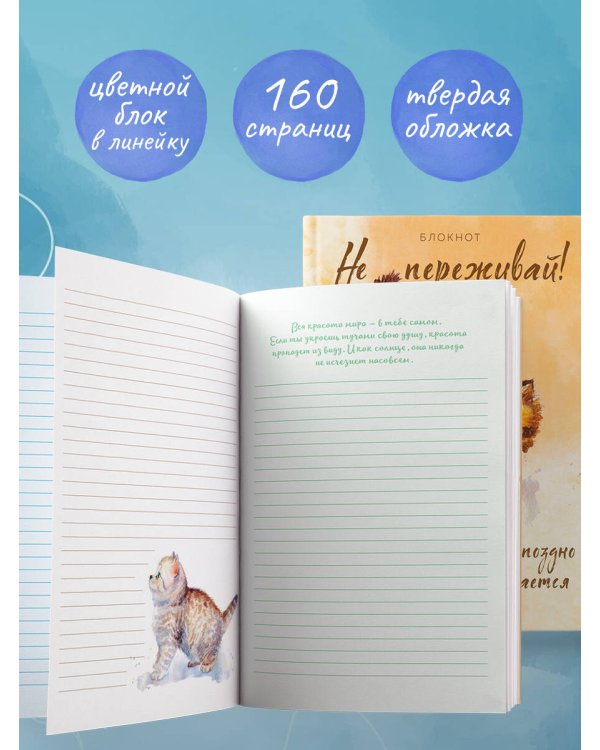 цветной
блок
в линейку
160
страниц
твердая
обложка
БЛОКНОТ
Не переживай!
Вся красота мира – в тебе самом.
Если ты укроешь тучами свою душу, красота
пропадет из виду. И как солнце, она никогда
не исчезнет насовсем.
поздно
ается